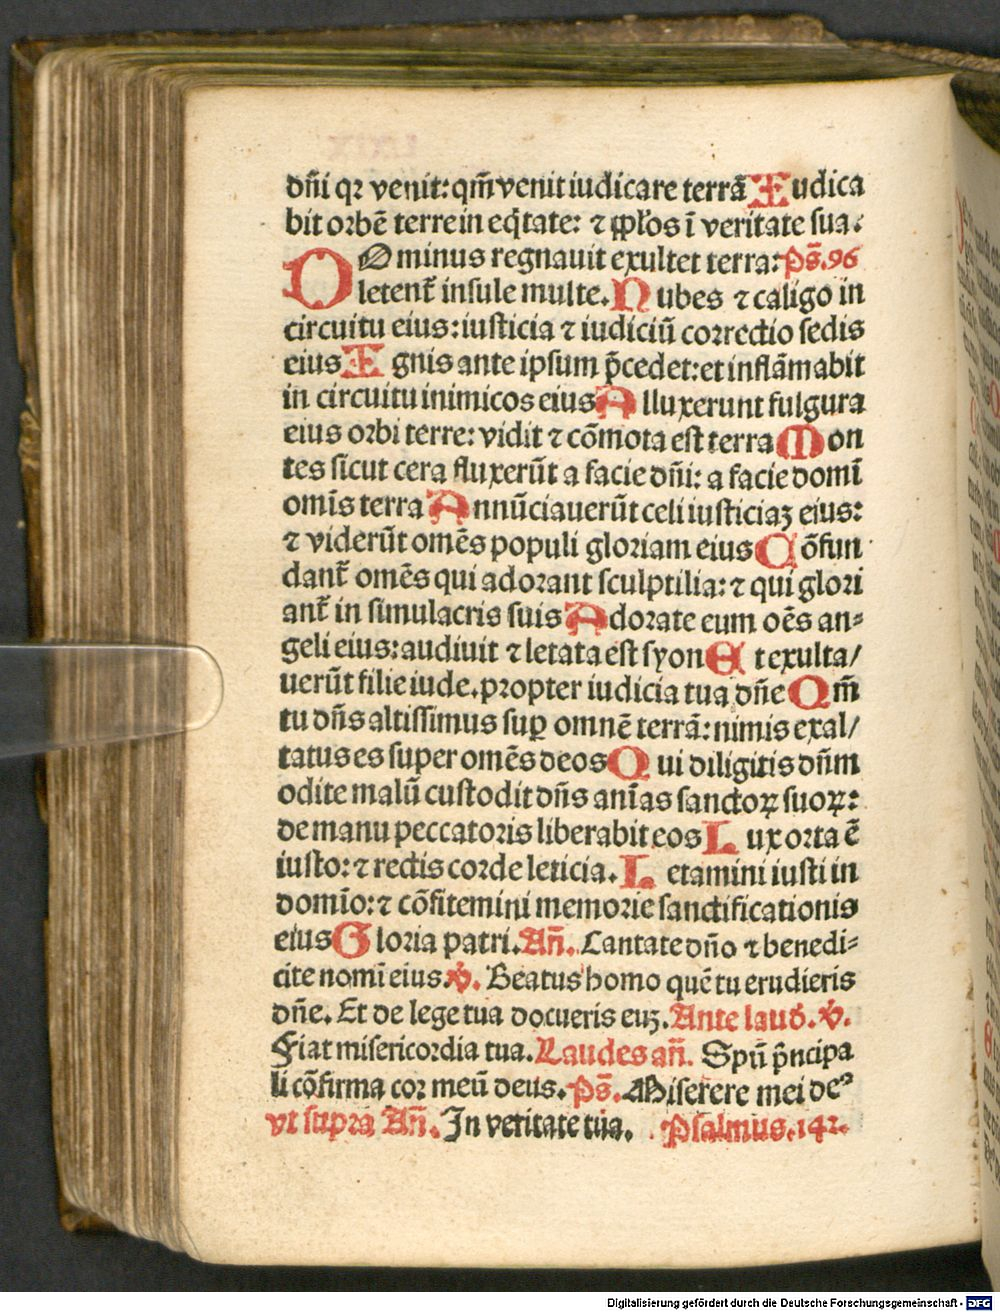 dñi qꝛ venit: qm̃ venit iudicare terrã Iudica
bit orbẽ terre in eq̃tate: ⁊ pp̃los ĩ veritate sua.
DOminus regnauit exultet terra: Ps̃.96
letent̃ insule multe. Nubes ⁊ caligo in
circuitu eius: iusticia ⁊ iudiciũ correctio sedis
eius Ignis ante ipsum p̃cedet: et inflãmabit
in circuitu inimicos eius Alluxerunt fulgura
eius orbi terre: vidit ⁊ cõmota est terra Mon
tes sicut cera fluxerũt a facie dñi: a facie domĩ
omĩs terra Annũciauerũt celi iusticiaꝫ eius:
⁊ viderũt omẽs populi gloriam eius Cõfun
dant̃ omẽs qui adorant sculptilia: ⁊ qui glori
ant̃ in simulacris suis Adorate eum oẽs an⸗
geli eius: audiuit ⁊ letata est syon Et exulta/
uerũt filie iude. propter iudicia tua dñe Qm̃
tu dñs altissimus suꝑ omnẽ terrã: nimis exal/
tatus es super omẽs deos Qui diligitis dñm
odite malũ custodit dñs anĩas sanctoꝝ suoꝝ:
de manu peccatoris liberabit eos Lux orta ẽ
iusto: ⁊ rectis corde leticia. Letamini iusti in
domĩo: ⁊ cõfitemini memorie sanctificationis
eius Gloria patri. Añ. Cantate dño ⁊ benedi⸗
cite nomĩ eius. ℣. Beatus homo quẽ tu erudieris
dñe. Et de lege tua docueris euꝫ. Ante laud̃. ℣.
Fiat misericordia tua. Laudes añ. Spũ p̃ncipa
li cõfirma cor meũ deus. Ps̃. Miserere mei deꝰ
vt supra Añ. In veritate tua. Psalmus.142.
Digitalisierung gefördert durch die Deutsche Forschungsgemeinschaft - DFG